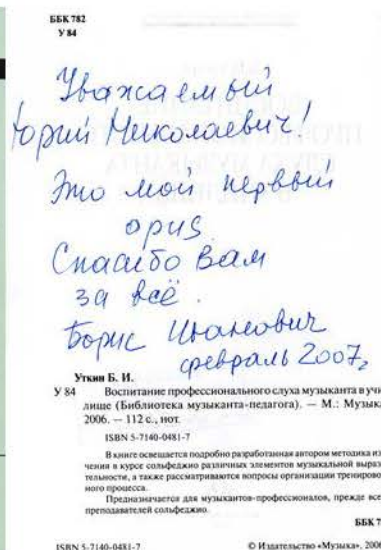 ББК 782
У 84
Уважаемый
Юрий Николаевич!
Это мой первый
opus
Спасибо Вам
за всё.
Борис Иванович
февраль 2007г
Уткин Б. И.
У 84 Воспитание профессионального слуха музыканта в учи
лище (Библиотека музыканта-педагога). — М.: Музыка
2006. — 112 с., нот.
ISBN 5-7140-0481-7
В книге освещается подробно разработанная автором методика из
чения в курсе сольфеджио различных элементов музыкальной выраз
тельности, а также рассматриваются вопросы организации тренирово
ного процесса.
Предназначается для музыкантов-профессионалов, прежде все
преподавателей сольфеджио.
ББК 7
ISBN 5-7140-0481-7 © Издательство «Музыка», 2006